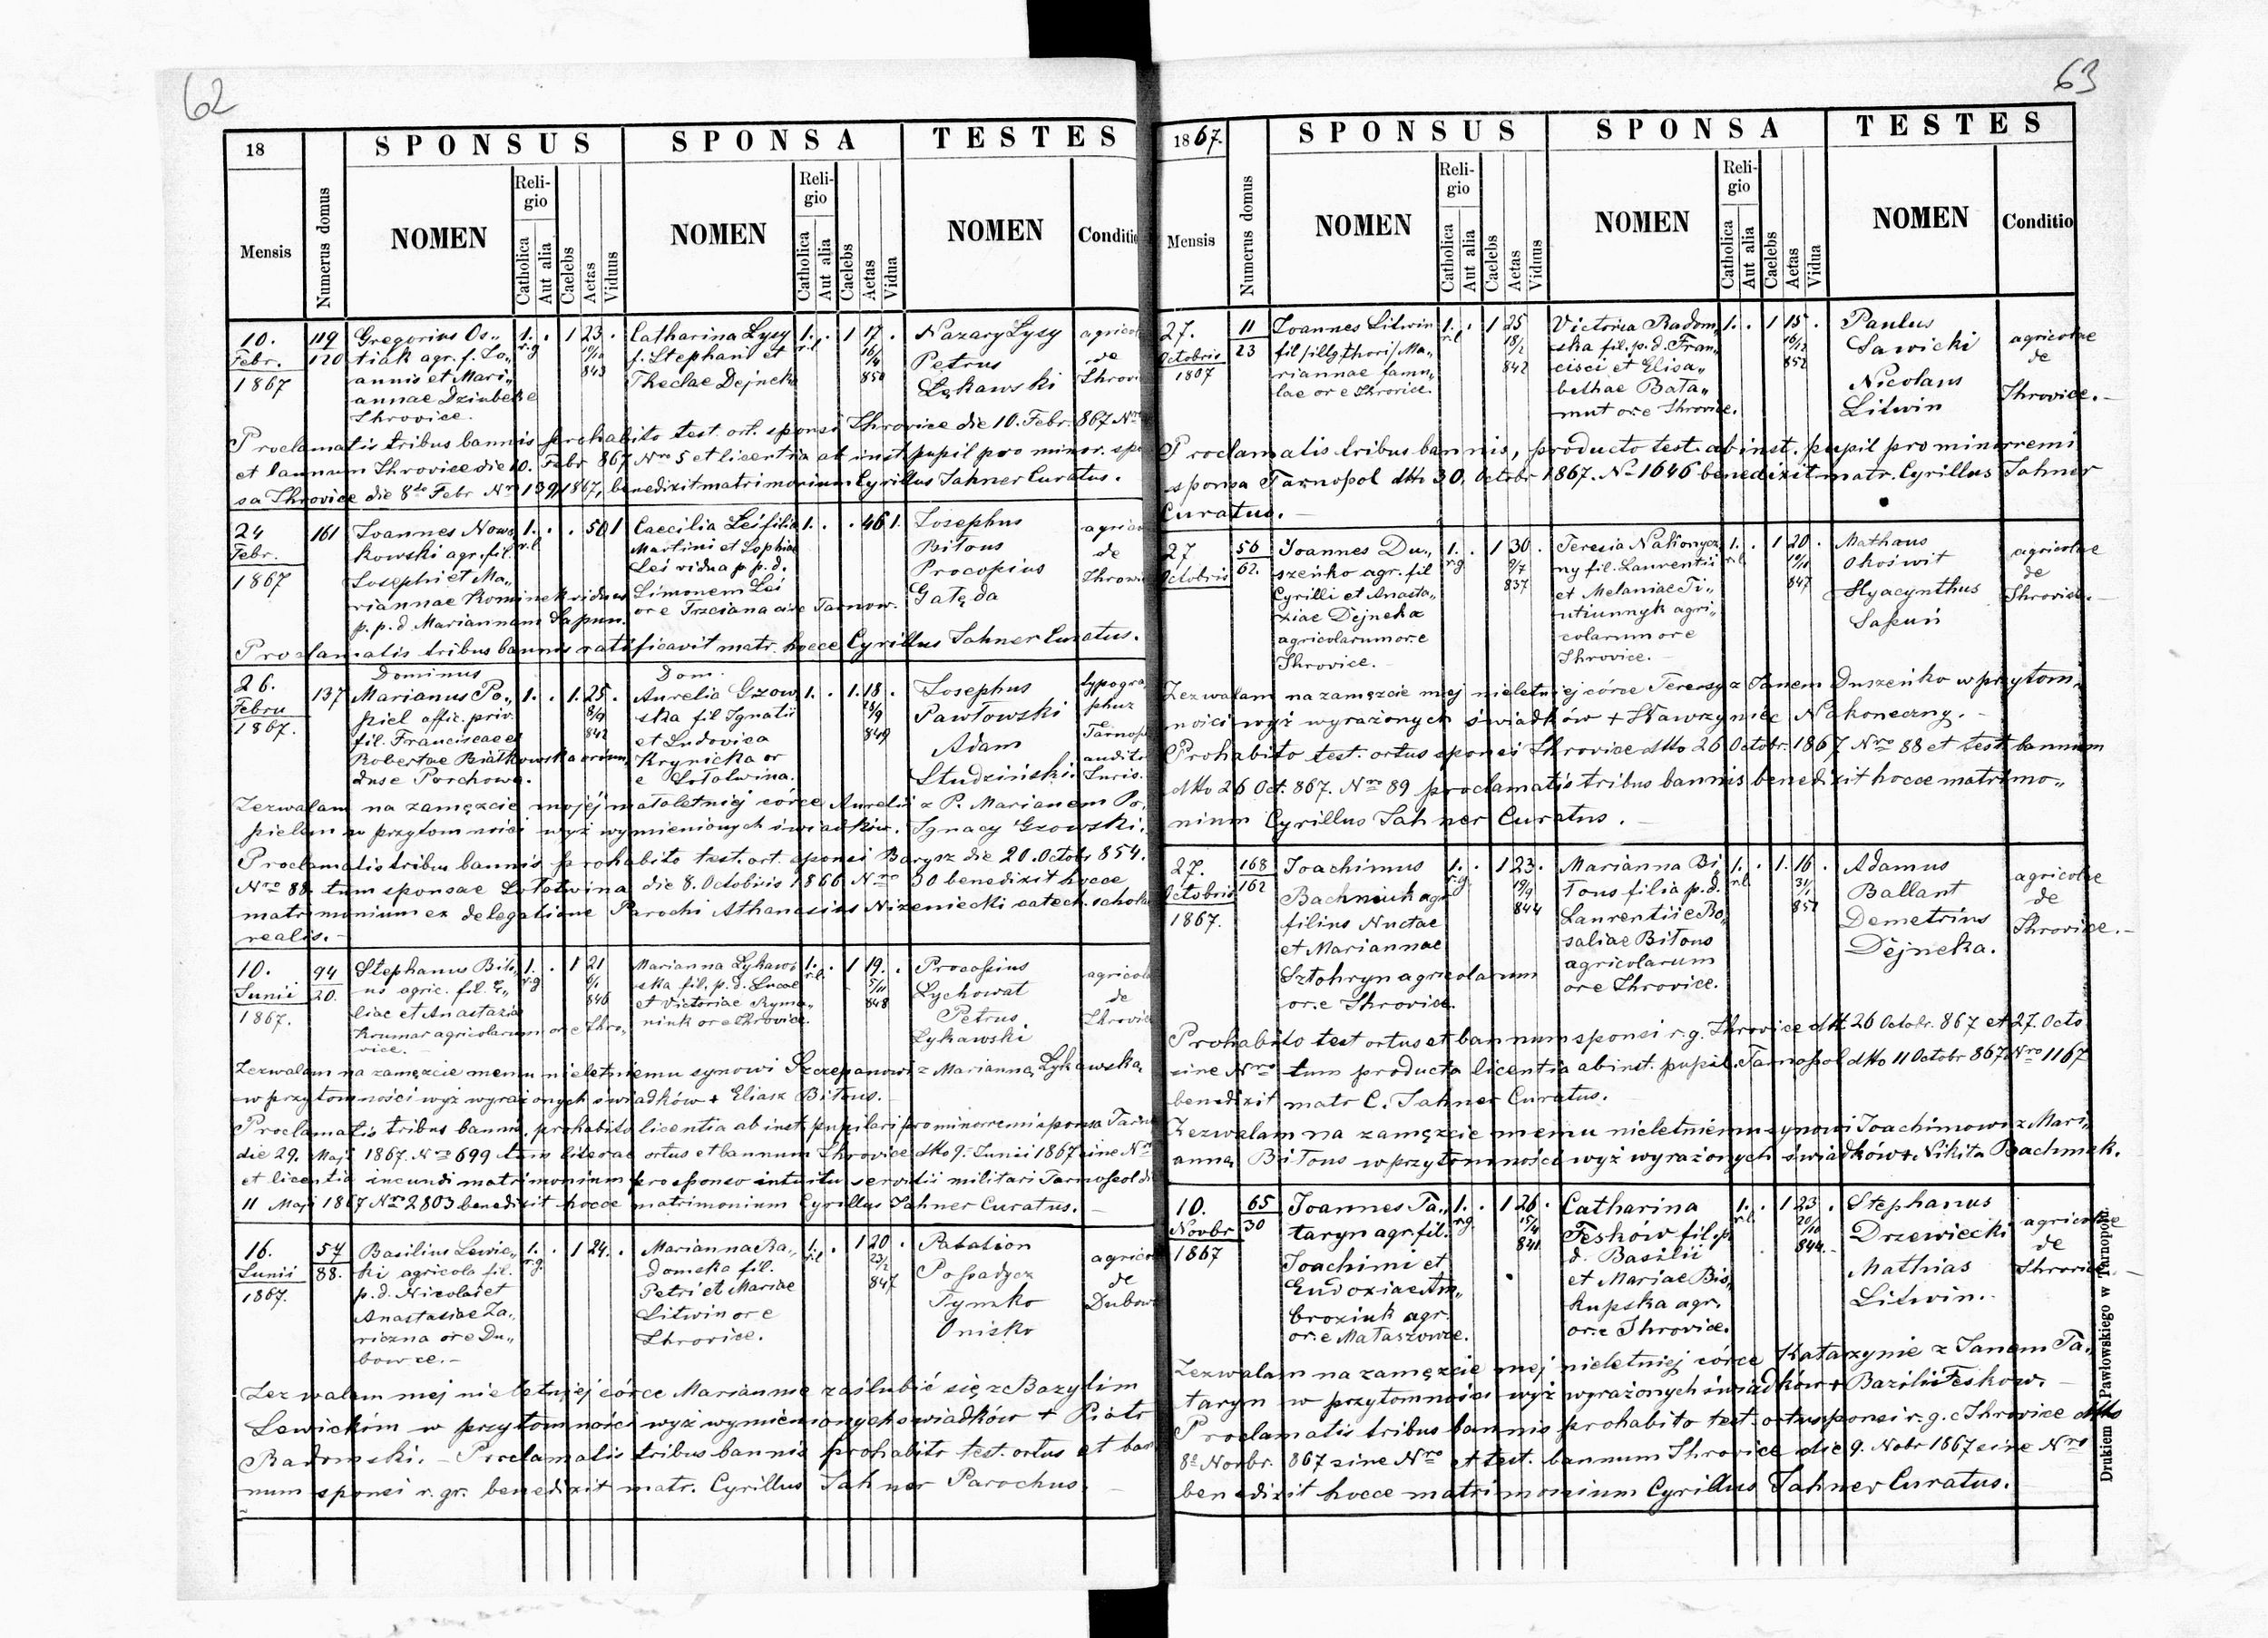 62
18
SPONSUS
SPONSA
TESTES
Mensis
Numerus domus
NOMEN
Religio
Catholica
Aut alia
Caelebs
Aetas
Viduus
NOMEN
Religio
Catholica
Aut alia
Caelebs
Aetas
Vidua
NOMEN
Conditio
10. Febr. 1867
119 120
Gregorius Os„
tiak agr. f. Jo„
annis et Mari„
annae Dziubek e
Ihrovice.
1. r.g . 1 23 . 843
Catharina Lysy
f. Stephani et
Theclae Dejneka
1. r.l . 1 17 . 16/4 850
Nazary Lysy
Petrus
Łękawski
agricol
de
Ihrovi
Proclamatis tribus bannis prohabito test. ort. sponsi Ihrovice die 10. Febr. 867 Nro
et bannum Ihrovice die 10. Febr 867 Nro 5 et licentia ab inst. pupil pro minor. spon
sa Ihrovice die 8to Febr Nro 139/1867, benedixit matrimonium Cyrillus Jahner Curatus.
24 Febr. 1867
161
Joannes Nowo
kowski agr. fil.
Josephi et Ma„
riannae Kominek viduus
p. p. d Mariannam Sapun.
1. r.l . . 50 1
Caecilia Leś filia
Martini et Sophiae
Leś vidua p p. d.
Simonem Leś
or e Trzciana circ Tarnow.
1. . . 46 1.
Josephus
Bitous
Procopius
Gałęda
agricol
de
Ihrovi
Proclamatis tribus bannis ratificavit matr. hocce Cyrillus Jahner Curatus.
26. Febru 1867.
137
Dominus
Marianus Po„
piel offic. priv.
fil. Franciscae et
Robertae Białkowska oriun„
duse Porchowa.
1. . 1. 25. 8/9 842
Dom.
Aurelia Gzow
ska fil Ignatii
et Ludovica
Krynicka or
e Sołotwina.
1. . 1. 18 . 28/9 849
Josephus
Pawłowski
Adam
Studziński
typogra
phus
Tarnop
audito
Juris.
Zezwalam na zamęzcie mojéj małoletniej córce Aurelii z P. Marianem Po„
pielem w przytomności wyż wymienionych świadków. Ignacy Gzowski.
Proclamatis tribus bannis prohabito test. ort. sponsi Barysz die 20. Octobr 854.
Nro 88. tum sponsae Sołotwina die 8. Octobris 1866 Nro 30 benedixit hocce
matrimonium ex delegatione Parochi Athanasius Nizeniecki catech. schola
realis.
10. Junii 1867.
94 20.
Stephanus Bito
us agric. fil. E„
liae et Anastazia
Krumar agricolarum or e Ihro„
vice.
1. r.g . 1 21 6/1 846
Marianna Łykaw
ska fil. p. d. Lucae
et Victoriae Ryma„
niuk or e Ihrovice.
1. r.l. . 1 19. . 5/11 848
Procopius
Łychowat
Petrus
Łykawski
agricol
de
Ihrovice
Zezwalam na zamęzcie memu nieletniemu synowi Szczepanowi z Marianną Łykawską,
w przytomności wyż wyrażonych świadków + Eliasz Bitous.
Proclamatis tribus bannis, prohabito licentia ab inst. pupilari pro minorremi sponsa Tarno
die 29. Maji 1867. Nro 699 tum literae ortus et bannum Ihrovice dtto 9. Junii 1867 sine Nro
et licentia ineundi matrimonium pro sponso intuitu servitii militari Tarnopol di
11 Maji 1867 Nro 2803 benedixit hocce matrimonium Cyrillus Jahner Curatus.
16. Junii 1867.
57 88.
Basilius Lewic„
ki agricola fil.
p. d. Nicolai et
Anastasiae Za„
riczna or e Du„
bowce.
1. r.g. . 1 24. .
Marianna Ra„
domska fil.
Petri et Mariae
Litwin or e
Ihrovice.
1. r.l . 1 20 . 23/2 847
Palation
Pospadycz
Tymko
Onisko
agrico
de
Dubow
Zezwalam mej nieletniej córce Mariannie zaślubić się z Bazylim
Lewickim w przytomności wyż wymienionych swiadków + Piotr
Radomski. Proclamatis tribus bannis prohabito test. ortus et ban
num sponsi r. gr. benedixit matr. Cyrillus Jahner Parochus.
63
1867.
SPONSUS
SPONSA
TESTES
Mensis
Numerus domus
NOMEN
Religio
Catholica
Aut alia
Caelebs
Aetas
Viduus
NOMEN
Religio
Catholica
Aut alia
Caelebs
Aetas
Vidua
NOMEN
Conditio
27. Octobris 1867
11 23
Joannes Litwin
fil /illg thori/ Ma„
riannae famu„
lae or e Ihrovice.
1. r.l . 1 25 18/2 842
Victoria Radom„
ska fil. p. d. Fran„
cisci et Elisa„
bethae Bała„
mut or e Ihrovice.
1. . 1 15 . 16/12 852
Paulus
Sawicki
Nicolaus
Litwin
agricolae
de
Ihrovice.
Proclamatis tribus bannis, producto test. ab inst. pupil pro minorremi
sponsa Tarnopol dtto 30. Octobr 1867. No 1646 benedixit matr. Cyrillus Jahner
Curatus.
27 Octobris
56 62.
Joannes Du„
szeńko agr. fil
Cyrilli et Anasta„
ziae Dejneka
agricolarum or e
Ihrovice.
1. r.g . 1 30. 9/7 837
Teresia Nakonycz
ny fil. Laurentii
et Melaniae Ti„
utiunnyk agri„
colarum or e
Ihrovice.
1. r.l . 1 20. 847
Mathaus
Okoświt
Hyacynthus
Sapuń
agricolae
de
Ihrovice.
Zezwalam na zamęzcie mej nieletniej córce Teresy z Janem Duszeńko w przytom„
ności wyż wyrażonych świadków + Wawrzyniec Nakoneczny.
Prohabito test. ortus sponsi Ihrovice dtto 26 Octobr. 1867 Nro 88 et test. bannum
dtto 26 Oct. 867. Nro 89 proclamatis tribus bannis benedixit hocce matrimo„
nium Cyrillus Jahner Curatus.
27. Octobris 1867.
168 162
Joachimus
Bachniuk agr
filius Nuctae
et Mariannae
Sztohryn agricolarum
or. e Ihrovice.
1. r.g. . 1 23. 19/9 844
Marianna Bi„
tous filia p. d.
Laurentii e Ro„
saliae Bitous
agricolarum
or e Ihrovice.
1. r.l. . 1. 16 . 31/1 851
Adamus
Ballant
Demetrius
Dejneka.
agricolae
de
Ihrovice.
Prohabito test ortus et bannum sponsi r. g. Ihrovice dtt. 26 Octobr. 867 et 27. Octo
sine Nro tum producta licentia ab inst. pupil. Tarnopol dtto 11 Octobr 867 Nro 1167
benedixit matr C. Jahner Curatus.
Zezwalam na zamęzcie memu nieletniemu synowi Joachimowi z Mari„
anną Bitous w przytomności wyż wyrażonych świadków + Nikita Bachniuk.
10. Novbr 1867
65 30
Joannes Ta„
taryn agr. fil.
Joachimi et
Eudoxiae Am„
broziuk agr.
or. e Mataszowce.
1. r.g. . 1 26 . 15/4 841
Catharina
Feśków fil. p.
d. Basilii
et Mariae Bis„
kupska agr.
or. e Ihrovice.
1. r.l. . 1 23 . 20/10 844.
Stephanus
Drzewiecki
Mathias
Litwin.
agricolae
de
Ihrovice
Zezwalam na zamęzcie mej nieletniej córce Katarzynie z Janem Ta„
taryn w przytomności wyż wyrażonych świadków + Bazilii Feskow.
Proclamatis tribus bannis prohabito test. ortus sponsi r. g. e Ihrovice dtto
8o Novbr. 867 sine Nro et test. bannum Ihrovice die 9. Nobr 1867 sine Nro
benedixit hocce matrimonium Cyrillus Jahner Curatus.
Drukiem Pawłowskiego w Tarnopolu.